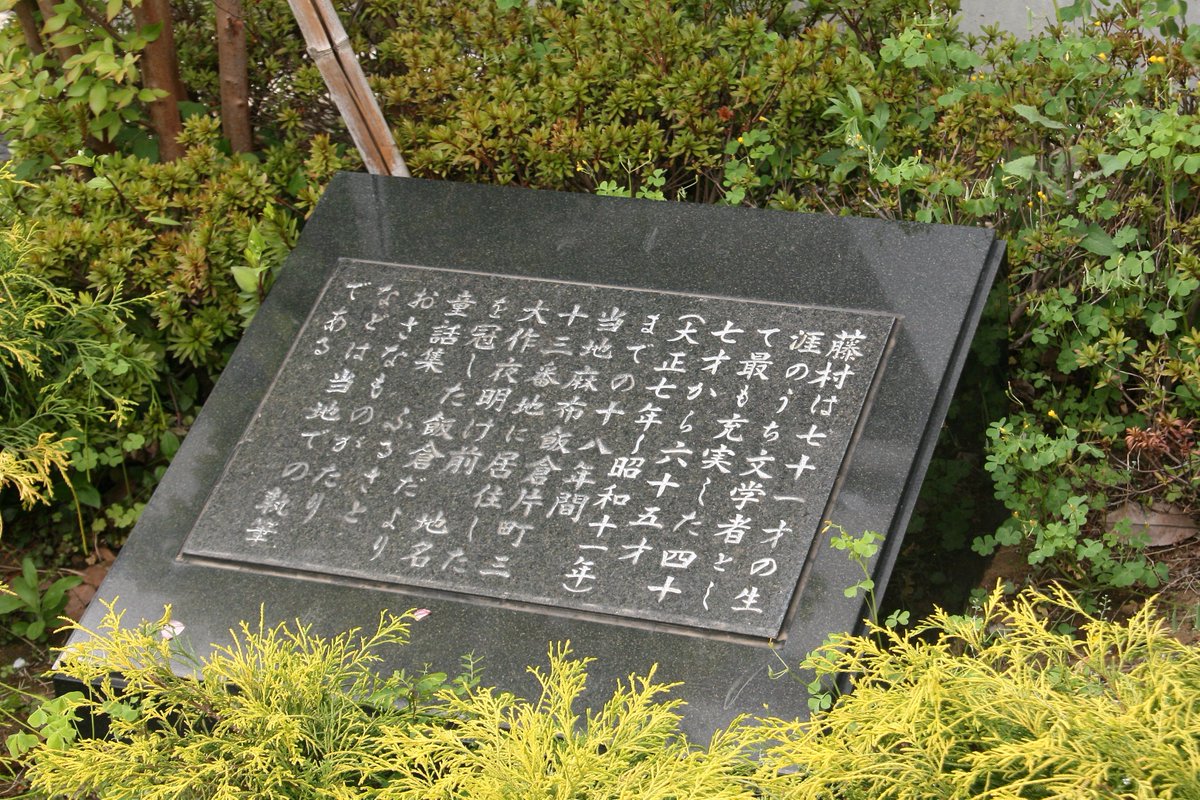 藤村は七十一才の生
涯のうち文学者とし
て最も充実した四十
七才から六十五才
(大正七年〜昭和十一年)
までの十八年間
当地麻布飯倉片町三
十三番地に居住した
大作夜明け前 地名
を冠した飯倉だより
童話集 ふるさと
おさなものがたり
などは当地での執筆
である